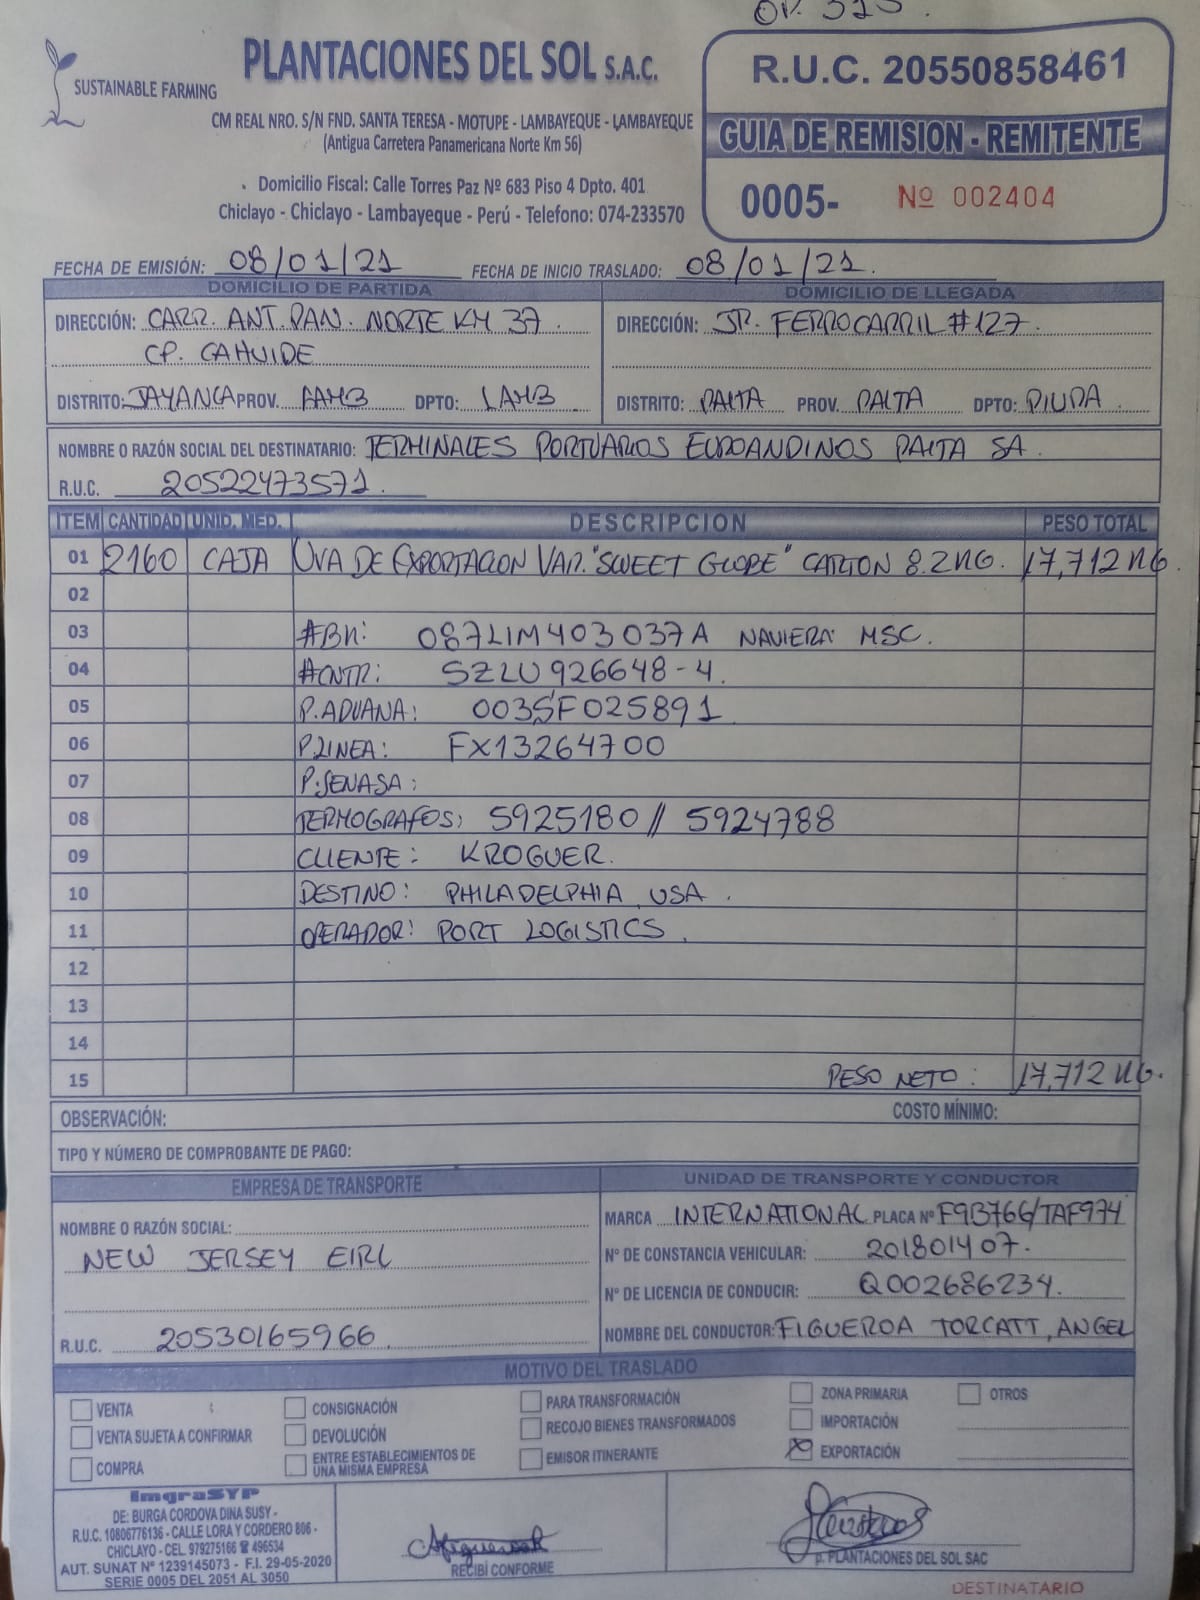 OP. 315.
SUSTAINABLE FARMING
PLANTACIONES DEL SOL S.A.C.
CM REAL NRO. S/N FND. SANTA TERESA - MOTUPE - LAMBAYEQUE - LAMBAYEQUE
(Antigua Carretera Panamericana Norte Km 56)
Domicilio Fiscal: Calle Torres Paz Nº 683 Piso 4 Dpto. 401
Chiclayo - Chiclayo - Lambayeque - Perú - Telefono: 074-233570
R.U.C. 20550858461
GUIA DE REMISION - REMITENTE
0005- Nº 002404
FECHA DE EMISIÓN: 08/01/21 FECHA DE INICIO TRASLADO: 08/01/21.
DOMICILIO DE PARTIDA
DIRECCIÓN: CARR. ANT. PAN. NORTE KM 37.
CP. CAHUIDE
DISTRITO: JAYANCA PROV. LAMB DPTO: LAMB
DOMICILIO DE LLEGADA
DIRECCIÓN: JR. FERROCARRIL #127.
DISTRITO: PAITA PROV. PAITA DPTO: PIURA
NOMBRE O RAZÓN SOCIAL DEL DESTINATARIO: TERMINALES PORTUARIOS EUROANDINOS PAITA SA.
R.U.C. 20522473571.
ITEM CANTIDAD UNID. MED. DESCRIPCION PESO TOTAL
01 2160 CAJA UVA DE EXPORTACION VAR. "SWEET GLOBE" CARTON 8.2KG. 17,712 KG.
02
03 #BK: 087LIM403037A NAVIERA: MSC.
04 #CNTR: SZLU 926648-4.
05 P.ADUANA: 003SF025891
06 P.LINEA: FX13264700
07 P.SENASA:
08 TERMOGRAFOS: 5925180 // 5924788
09 CLIENTE: KROGUER.
10 DESTINO: PHILADELPHIA, USA.
11 OPERADOR: PORT LOGISTICS.
12
13
14
15 PESO NETO: 17,712 KG.
OBSERVACIÓN: COSTO MÍNIMO:
TIPO Y NÚMERO DE COMPROBANTE DE PAGO:
EMPRESA DE TRANSPORTE
NOMBRE O RAZÓN SOCIAL:
NEW JERSEY EIRL
R.U.C. 20530165966
UNIDAD DE TRANSPORTE Y CONDUCTOR
MARCA INTERNATIONAL PLACA Nº F9B766/TAF974
Nº DE CONSTANCIA VEHICULAR: 201801407.
Nº DE LICENCIA DE CONDUCIR: Q002686234.
NOMBRE DEL CONDUCTOR: FIGUEROA TORCATT, ANGEL
MOTIVO DEL TRASLADO
VENTA CONSIGNACIÓN PARA TRANSFORMACIÓN ZONA PRIMARIA OTROS
VENTA SUJETA A CONFIRMAR DEVOLUCIÓN RECOJO BIENES TRANSFORMADOS IMPORTACIÓN
COMPRA ENTRE ESTABLECIMIENTOS DE EMISOR ITINERANTE X EXPORTACIÓN
UNA MISMA EMPRESA
ImgraSYP
DE: BURGA CORDOVA DINA SUSY -
R.U.C. 10806776136 - CALLE LORA Y CORDERO 806 -
CHICLAYO - CEL. 979275166 ☎ 496534
AUT. SUNAT Nº 1239145073 - F.I. 29-05-2020
SERIE 0005 DEL 2051 AL 3050
RECIBÍ CONFORME
p. PLANTACIONES DEL SOL SAC
DESTINATARIO